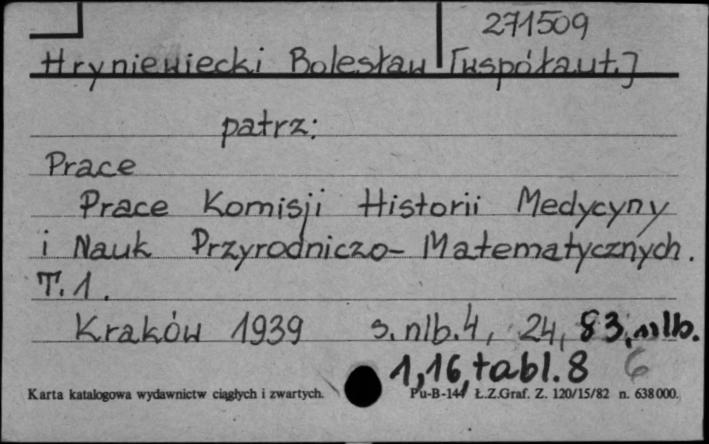 271509
Hryniewiecki Bolesław [współaut.]
patrz:
Prace
Prace Komisji Historii Medycyny
i Nauk Przyrodniczo-Matematycznych.
T. 1.
Kraków 1939 s. nlb. 4, 24, 83, nlb.
1, 16, tabl. 8 6
Karta katalogowa wydawnictw ciągłych i zwartych. Pu-B-144 Ł.Z.Graf. Z. 120/15/82 n. 638 000.